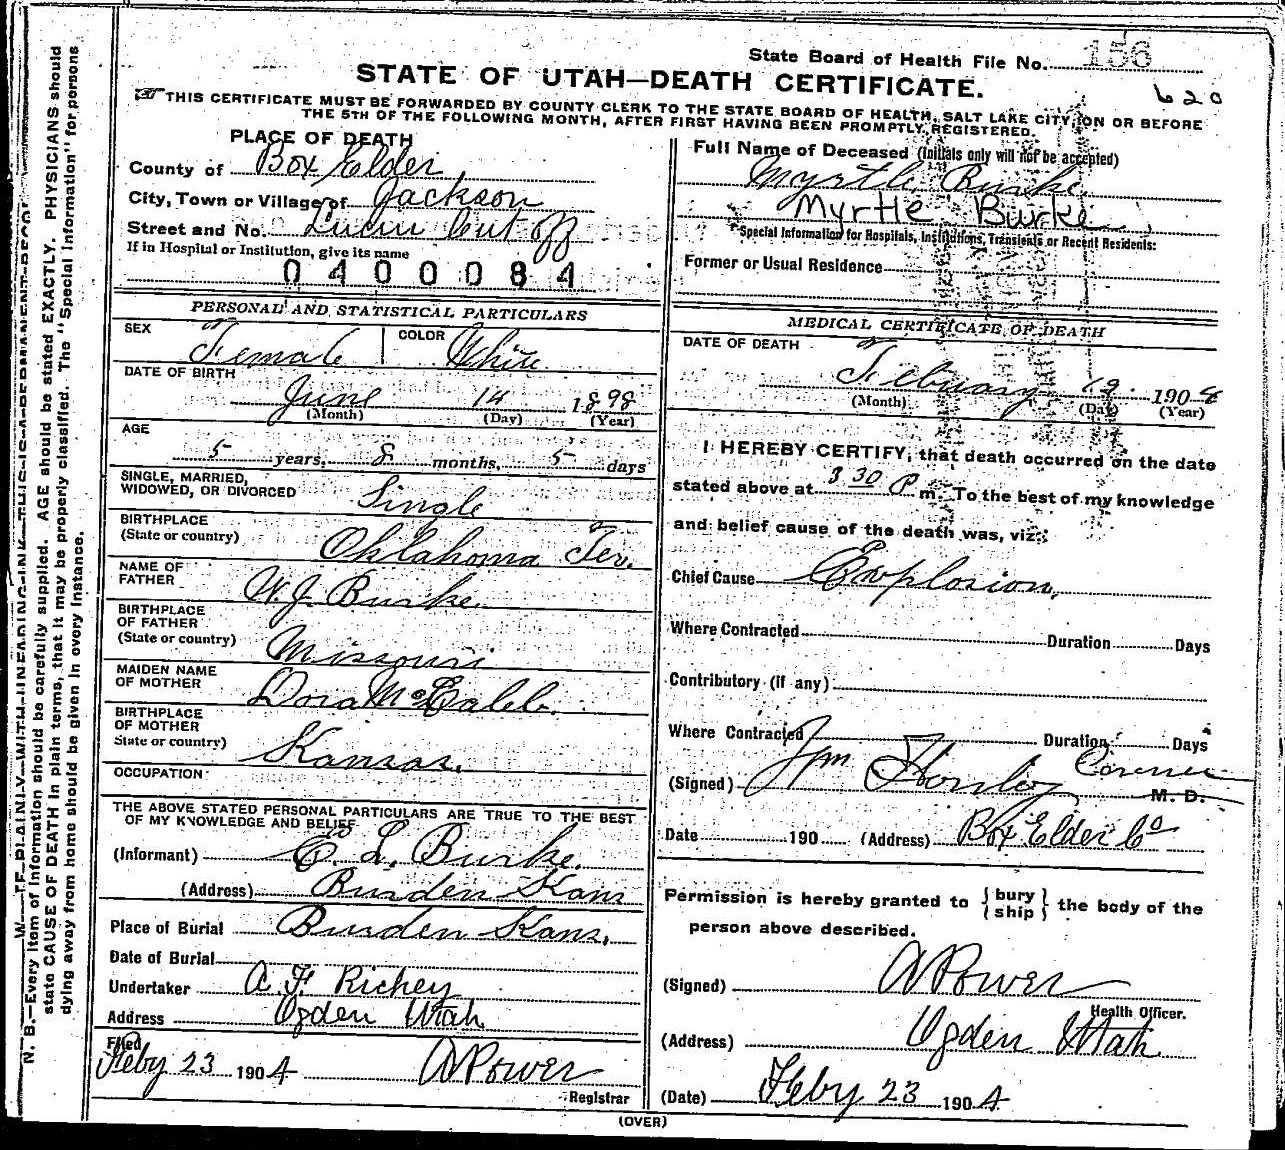 State Board of Health File No. 156
STATE OF UTAH—DEATH CERTIFICATE.
620
THIS CERTIFICATE MUST BE FORWARDED BY COUNTY CLERK TO THE STATE BOARD OF HEALTH, SALT LAKE CITY, ON OR BEFORE
THE 5TH OF THE FOLLOWING MONTH, AFTER FIRST HAVING BEEN PROMPTLY REGISTERED.
PLACE OF DEATH
County of Box Elder
City, Town or Village of Jackson
Street and No. Lucin Cut off
If in Hospital or Institution, give its name
0400084
PERSONAL AND STATISTICAL PARTICULARS
SEX Female COLOR White
DATE OF BIRTH
June 14 1898
(Month) (Day) (Year)
AGE
5 years, 8 months, 5 days
SINGLE, MARRIED,
WIDOWED, OR DIVORCED Single
BIRTHPLACE
(State or country) Oklahoma Ter.
NAME OF
FATHER W. J. Burke.
BIRTHPLACE
OF FATHER
(State or country) Missouri
MAIDEN NAME
OF MOTHER Dora McCaleb.
BIRTHPLACE
OF MOTHER
State or country) Kansas.
OCCUPATION
THE ABOVE STATED PERSONAL PARTICULARS ARE TRUE TO THE BEST
OF MY KNOWLEDGE AND BELIEF
(Informant) C. L. Burke.
(Address) Burden Kans
Place of Burial Burden Kans.
Date of Burial
Undertaker A. F. Richey
Address Ogden Utah
Filed
Feby 23 1904 A Power
Registrar
Full Name of Deceased (Initials only will not be accepted)
Myrtle Burke
Myrtle Burke
Special Information for Hospitals, Institutions, Transients or Recent Residents:
Former or Usual Residence
MEDICAL CERTIFICATE OF DEATH
DATE OF DEATH
Febuary 19. 1904
(Month) (Day) (Year)
I HEREBY CERTIFY, that death occurred on the date
stated above at 3 30 P m. To the best of my knowledge
and belief cause of the death was, viz:
Chief Cause Explosion,
Where Contracted Duration Days
Contributory (if any)
Where Contracted Duration Days
(Signed) Wm Coroner
M. D.
Date 190 (Address) Box Elder Co
Permission is hereby granted to {bury
ship} the body of the
person above described.
(Signed) A Power
Health Officer.
(Address) Ogden Utah
(Date) Feby 23 1904
(OVER)
N. B.—Every item of information should be carefully supplied. AGE should be stated EXACTLY. PHYSICIANS should
state CAUSE OF DEATH in plain terms, that it may be properly classified. The "Special Information" for persons
dying away from home should be given in every instance.